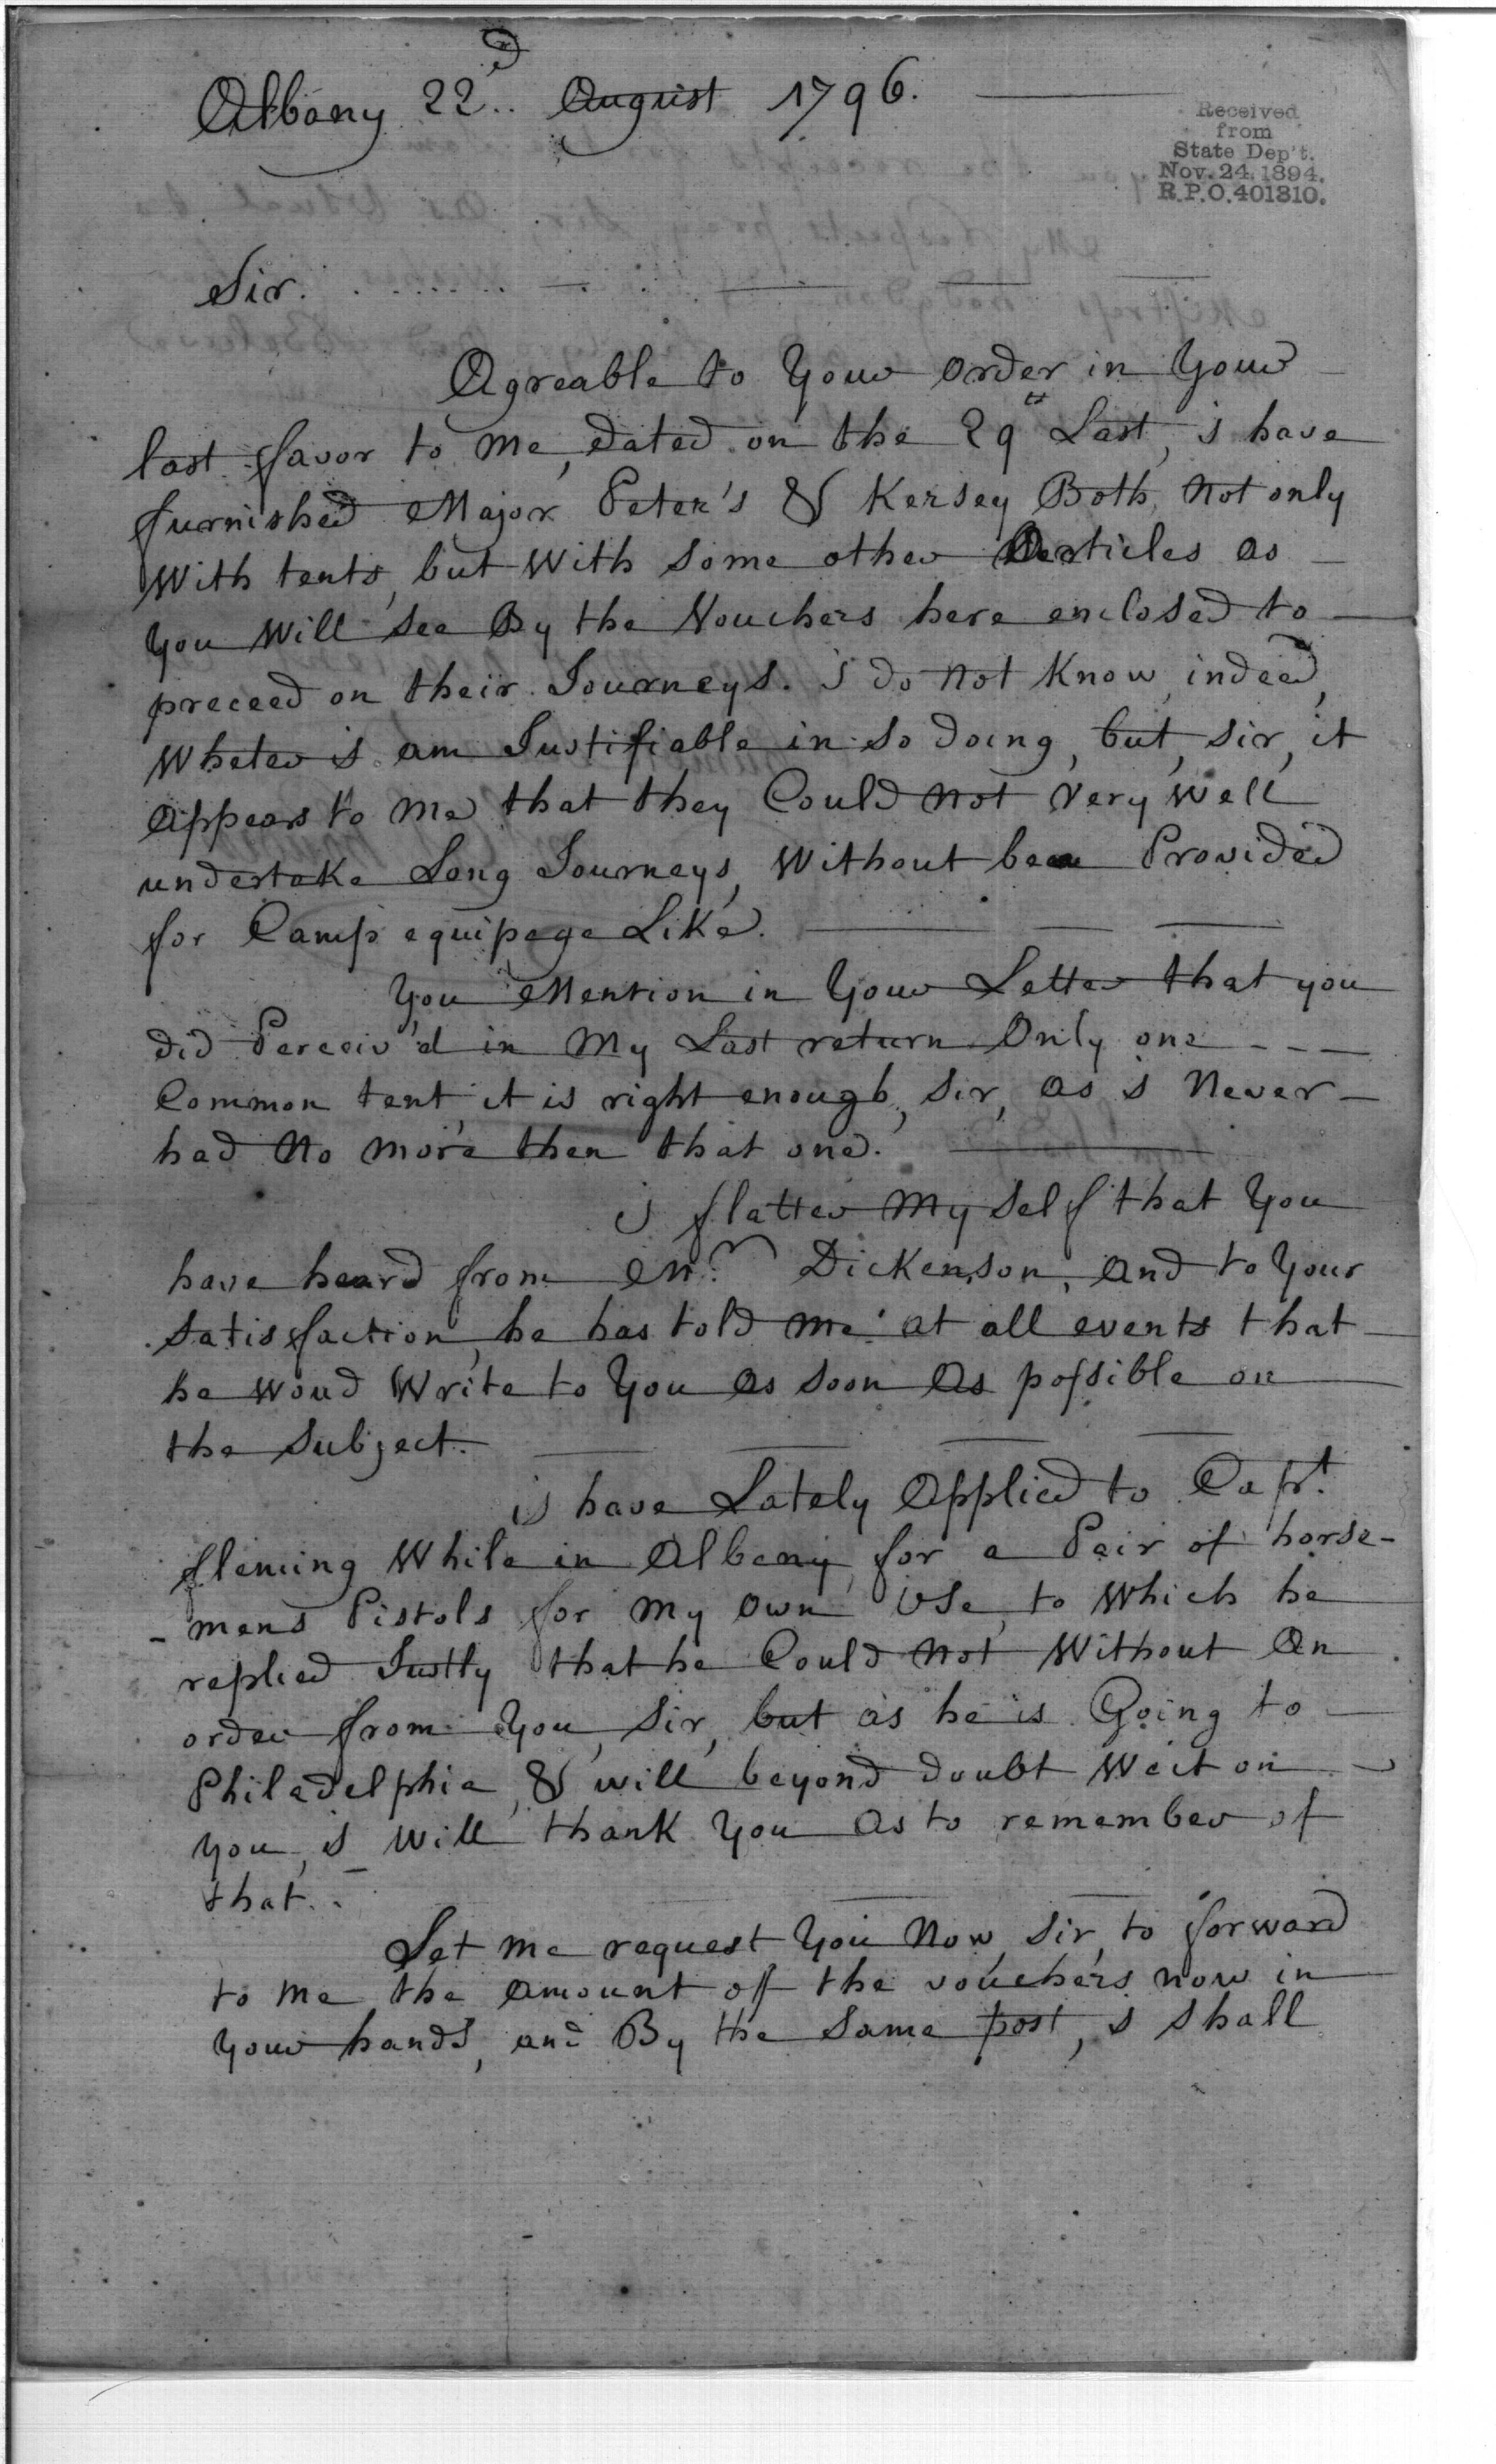 Albany 22.d August 1796.
Received
from
State Dep't.
Nov. 24. 1894.
R.P.O. 401310.
Sir.
Agreable to Your order in Your
last favor to me, dated on the 29th Last, i have
furnished Major Peter's & Kersey Both, Not only
With tents, but With Some other Articles as
you Will See By the Vouchers here enclosed to
preceed on their Journeys. i do not Know, indeed,
Wheter i am Justifiable in So doing, but, Sir, it
appears to me that they Could not Very Well
undertake Long Journeys, Without been Provided
for Camp equipage Like.
You Mention in Your Letter that you
did Perceiv'd in My Last return Only one
Common tent it is right enough, Sir, as i Never
had No more then that one.
i flatter My Self that You
have heard from Mr. Dickenson, and to Your
Satisfaction, he has told me at all events that
he woud Write to You as Soon As possible on
the Subject.
i have Lately Applied to Capt.
fleming While in Albany, for a Pair of horse-
-mens Pistols for my own Use, to Which he
replied Justly that he Could Not Without An
order from You, Sir, but as he is Going to
Philadelphia, & will beyond doubt Weit on
you, i Will thank You As to remember of
that.
Let me request You Now, Sir, to forward
to me the amount off the vouchers now in
Your hands, and By the Same post, i Shall